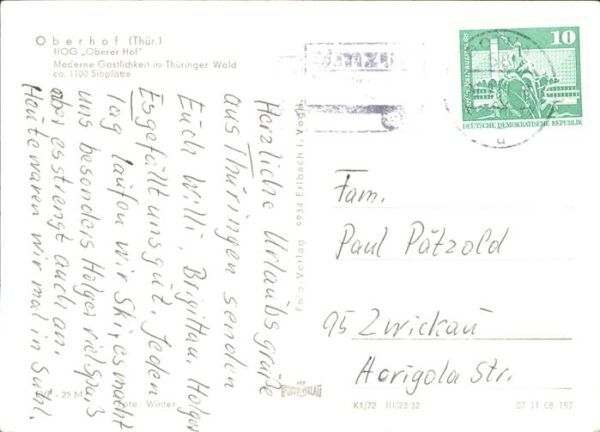 Oberhof (Thür.)
HOG „Oberer Hof"
Moderne Gastlichkeit im Thüringer Wald
ca. 1100 Sitzplätze
Herzliche Urlaubsgrüße
aus Thüringen senden
Euch Willi, Brigitta u. Holger
Es gefällt uns gut. Jeden
Tag laufen wir Ski, es macht
uns besonders Holger viel Spaß
aber es strengt auch an.
Heute waren wir mal in Suhl.
25 M
Foto: Winter
Foto-Verlag 9934 Erlbach i. Vogtl.
10
DEUTSCHE DEMOKRATISCHE REPUBLIK
Fam.
Paul Pätzold
95 Zwickau
Horigola Str.
K1/72 III/23 32
07 11 08 197